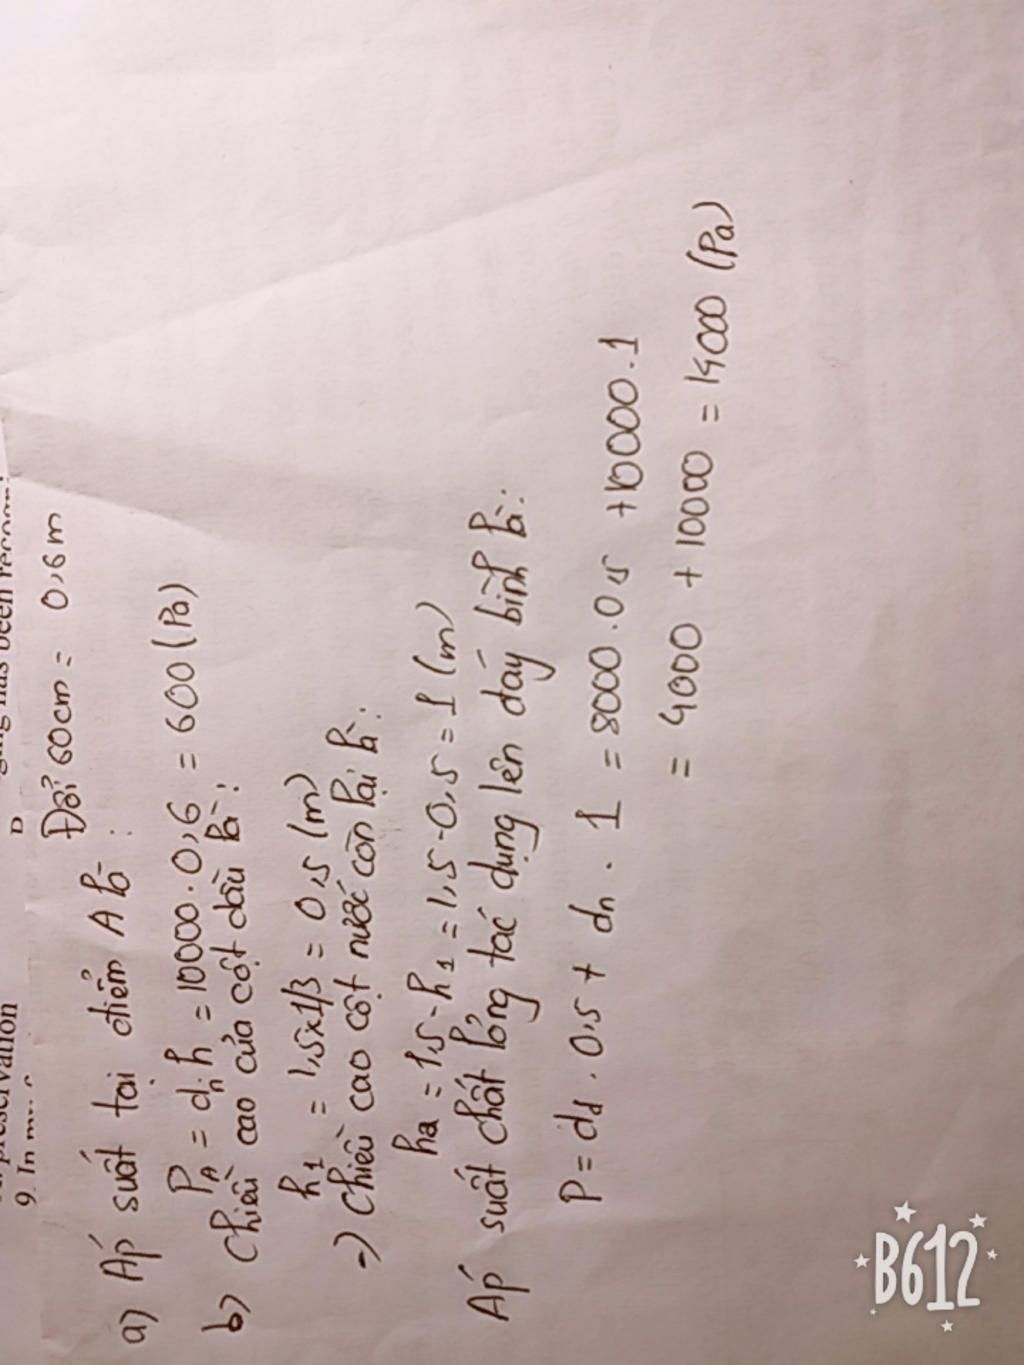 9. In my
Đổi 60cm = 0,6m
a) Áp suất tại điểm A là:
PA = dn.h = 10000.0,6 = 600 (Pa)
b) Chiều cao của cột dầu là:
h1 = 1,5x1/3 = 0,5 (m)
=) Chiều cao cột nước còn lại là:
ha = 1,5-h1 = 1,5-0,5 = 1 (m)
Áp suất chất lỏng tác dụng lên đáy bình là:
P = dd.0,5 + dn.1 = 8000.0,5 +10000.1
= 4000 + 10000 = 14000 (Pa)
B612